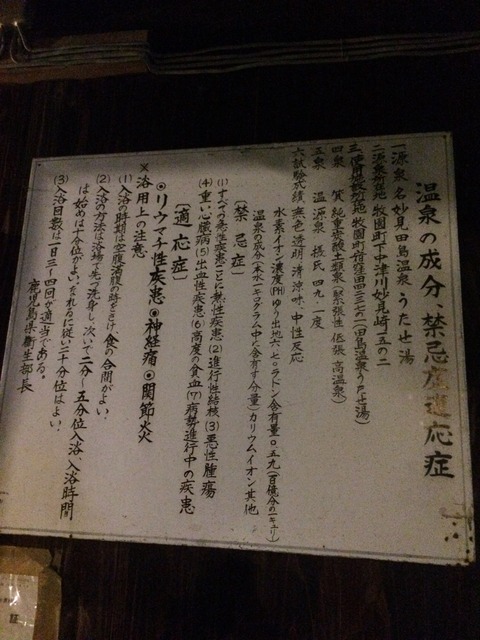 温泉の成分、禁忌症適応症
一源泉名 妙見田島温泉、うたせ湯
二源泉所在地 牧園町下中津川妙見崎一五の二
三使用施設所在地 牧園町宿窪田四二三七の一(田島温泉うたせ湯)
四泉質 純重炭酸土類泉(緊張性 低張 高温泉)
五泉温 源泉 摂氏 四九・一度
六試験成績 無色 透明 清涼味 中性反応
水素イオン濃度(PH)
ラドン含有量〇・五九(百億分の一キュリー)
温泉の成分(本水一キログラム中に含有する分量)カリウムイオン其他
〔禁忌症〕
(1)すべての急性疾患ことに熱性疾患(2)進行性結核(3)悪性腫瘍
(4)重い心臓病(5)出血性疾患(6)高度の貧血(7)病勢進行中の疾患
〔適応症〕
◎リウマチ性疾患◎神経痛◎関節炎
※浴用上の注意
(1)入浴の時期は空腹満腹の時をさけ、食の合間がよい、
(2)入浴の方法は浴場で先づ洗身し、次いで二分〜五分位入浴、入浴時間
は始めは十分位がよい、なれるに従い二十分位はよい、
(3)入浴日数は一日三〜四回が適当である。
鹿児島県衛生部長